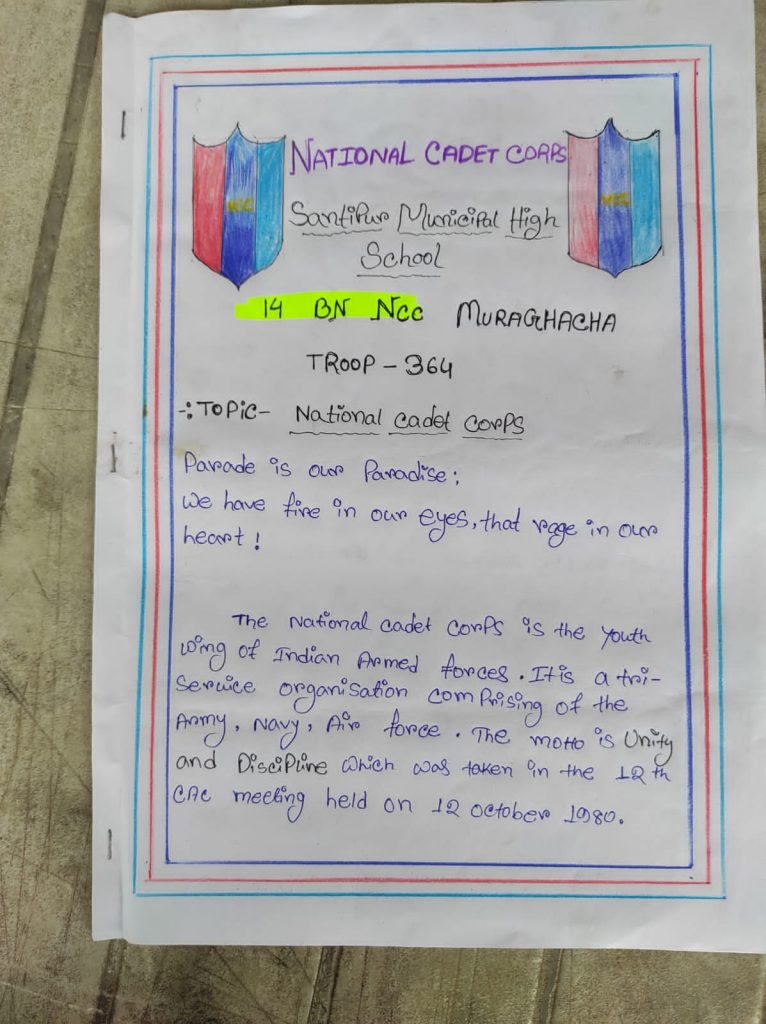 NATIONAL CADET CORPS
NCC
NCC
Santipur Municipal High
School
14 BN NCC MURAGHACHA
TROOP - 364
-:TOPiC- National cadet corps
Parade is our Paradise;
We have fire in our eyes, that rage in our
heart!
The National cadet corps is the youth
wing of Indian Armed forces. It is a tri-
service organisation comprising of the
Army, Navy, Air force. The motto is Unity
and Discipline which was taken in the 12th
CAC meeting held on 12 october 1980.